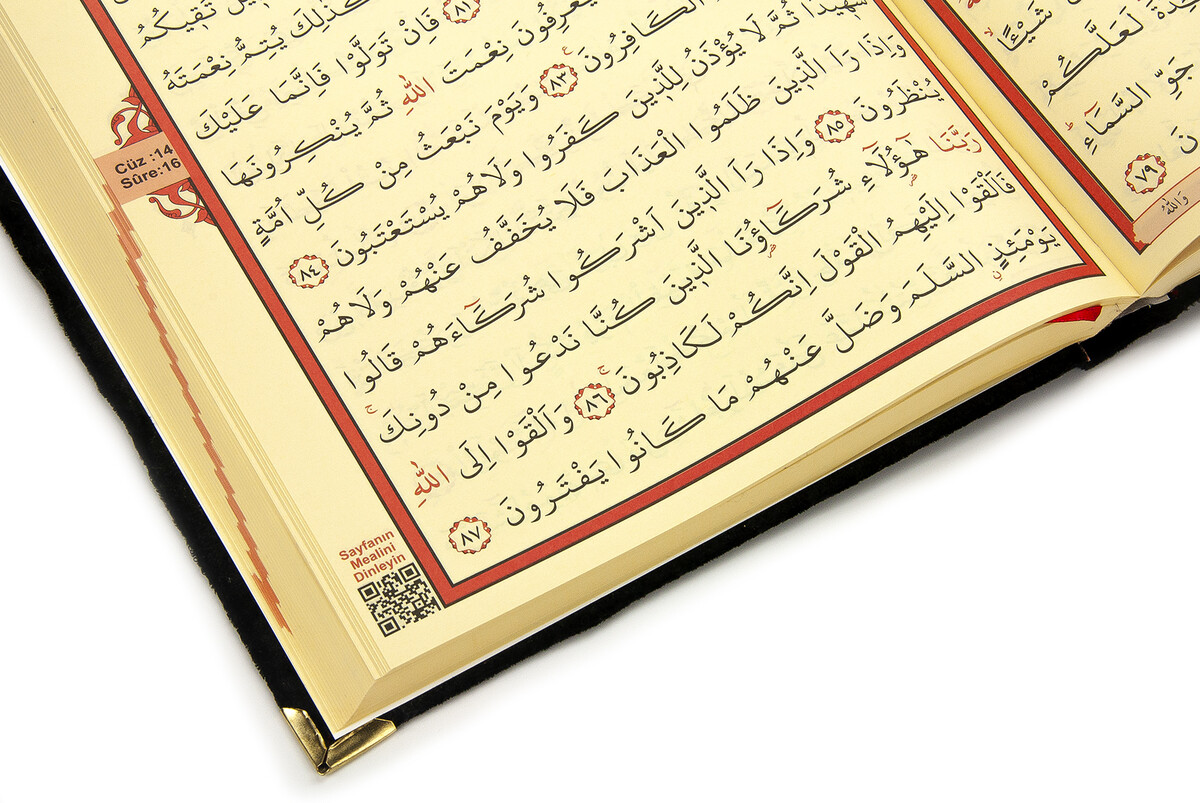 شَيْـًٔا
لَعَلَّكُمْ
جَوِّ السَّمَٓاءِ
٧٩
وَاللّٰهُ
تَقِيكُمُ
كَذٰلِكَ يُتِمُّ نِعْمَتَهُ
٨١ فَاِنْ تَوَلَّوْا فَاِنَّمَا عَلَيْكَ
يَعْرِفُونَ نِعْمَتَ اللّٰهِ ثُمَّ يُنْكِرُونَهَا
الْكَافِرُونَ ٨٣ وَيَوْمَ نَبْعَثُ مِنْ كُلِّ اُمَّةٍ
شَهِيدًا ثُمَّ لَا يُؤْذَنُ لِلَّذِينَ كَفَرُوا وَلَاهُمْ يُسْتَعْتَبُونَ ٨٤
وَاِذَا رَاَ الَّذِينَ ظَلَمُوا الْعَذَابَ فَلَا يُخَفَّفُ عَنْهُمْ وَلَاهُمْ
يُنْظَرُونَ ٨٥ وَاِذَا رَاَ الَّذِينَ اَشْرَكُوا شُرَكَٓاءَهُمْ قَالُوا
رَبَّنَا هٰٓؤُلَٓاءِ شُرَكَٓاؤُنَا الَّذِينَ كُنَّا نَدْعُوا مِنْ دُونِكَ
فَاَلْقَوْا اِلَيْهِمُ الْقَوْلَ اِنَّكُمْ لَكَاذِبُونَ ٨٦ وَاَلْقَوْا اِلَى اللّٰهِ
يَوْمَئِذٍ السَّلَمَ وَضَلَّ عَنْهُمْ مَا كَانُوا يَفْتَرُونَ ٨٧
Cüz :14
Sûre:16
Sayfanın
Mealini
Dinleyin